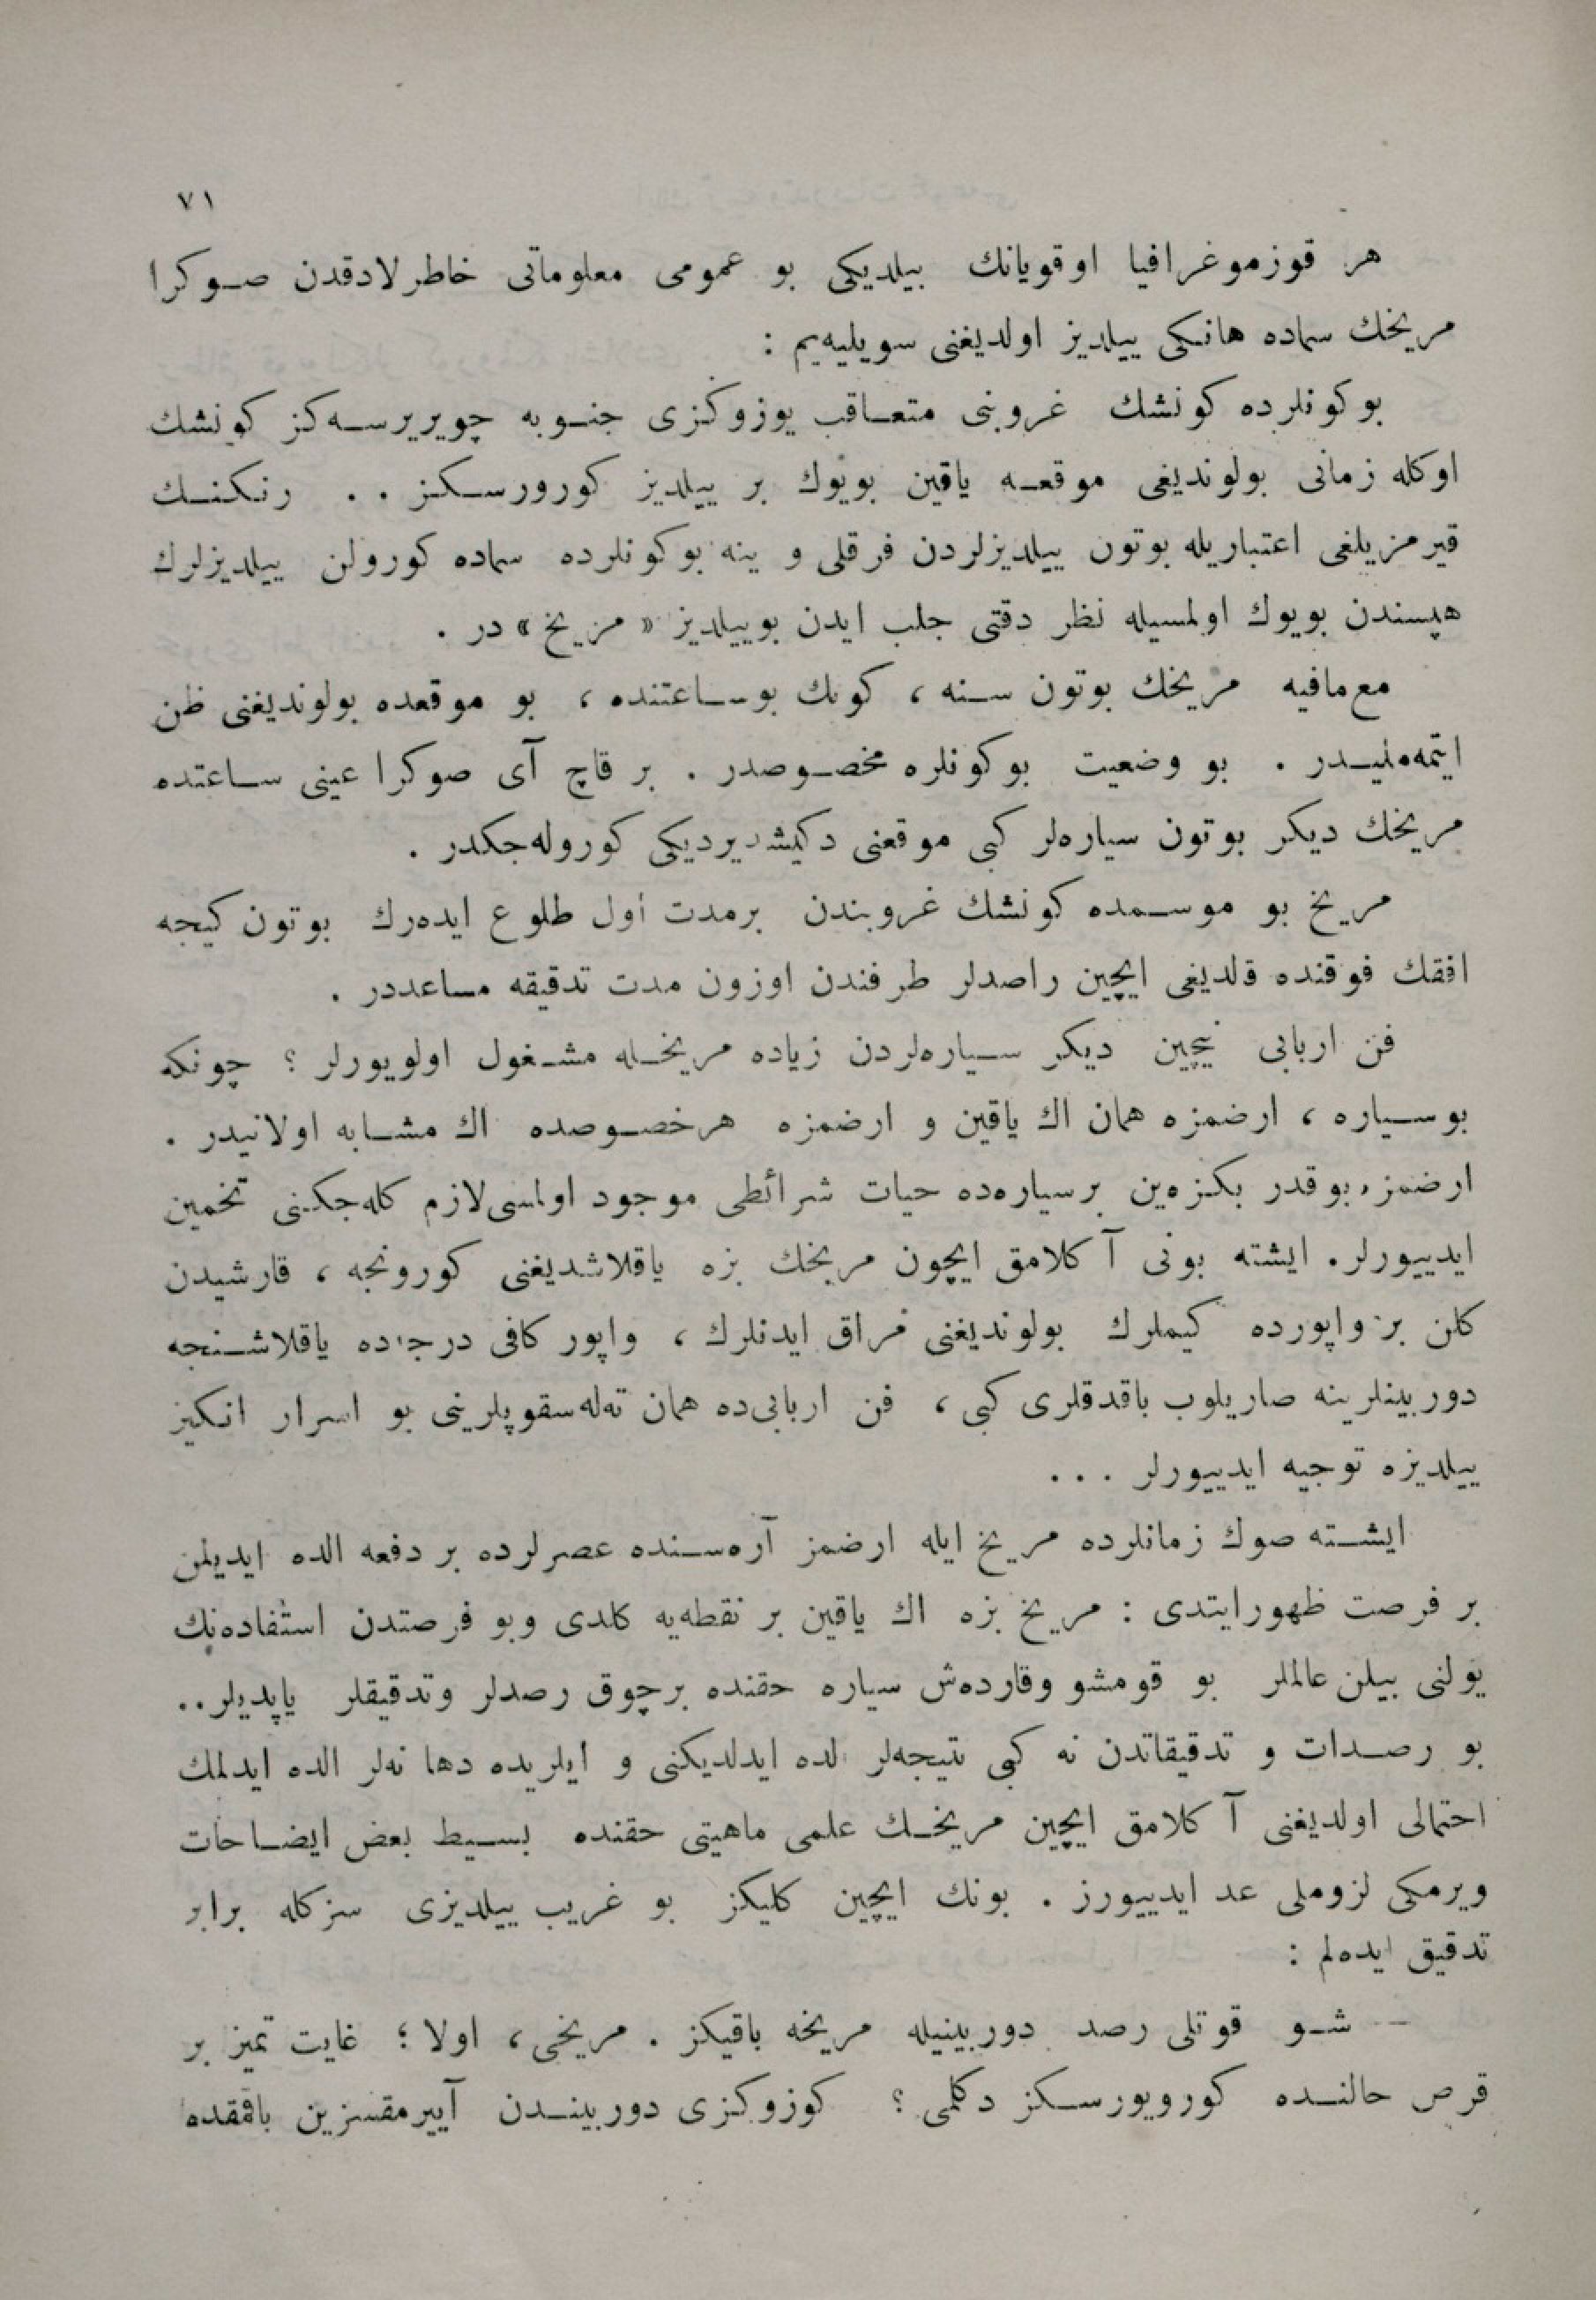 ٧١
هر قوزموغرافيا اوقويانك بيلديكى بو عمومى معلوماتى خاطرلادقدن صوكرا
مريخك سماده هانكى ييلديز اولديغنى سويليه‌يم :
بوكونلرده كونشك غروبنى متعاقب يوزوكزى جنوبه چويريرسه‌كز كونشك
اوكله زمانى بولونديغى موقعه ياقين بويوك بر ييلديز كورورسكز . . رنكنك
قيرمزيلغى اعتباريله بوتون ييلديزلردن فرقلى و ينه بوكونلرده سماده كورولن ييلديزلرك
هپسندن بويوك اولمسيله نظر دقتى جلب ايدن بوييلديز « مريخ » در .
مع‌مافيه مريخك بوتون سنه ، كونك بوساعتنده ، بو موقعده بولونديغنى ظن
ايتمه‌مليدر . بو وضعيت بوكونلره مخصوصدر . بر قاچ آى صوكرا عينى ساعتده
مريخك ديكر بوتون سياره‌لر كبى موقعنى دكيشديرديكى كوروله‌جكدر .
مريخ بو موسمده كونشك غروبندن برمدت اول طلوع ايده‌رك بوتون كيجه
افقك فوقنده قلديغى ايچين راصدلر طرفندن اوزون مدت تدقيقه مساعددر .
فن اربابى نيچين ديكر سياره‌لردن زياده مريخله مشغول اولويورلر ؟ چونكه
بوسياره ، ارضمزه همان اك ياقين و ارضمزه هرخصوصده اك مشابه اولانيدر .
ارضمزه بوقدر بكزه‌ين برسياره‌ده حيات شرائطى موجود اولمسى‌لازم كله‌جكنى تخمين
ايدييورلر. ايشته بونى آكلامق ايچون مريخك بزه ياقلاشديغنى كورونجه ، قارشيدن
كلن بر واپورده كيملرك بولونديغنى مراق ايدنلرك ، واپور كافى درجه‌ده ياقلاشنجه
دوربينلرينه صاريلوب باقدقلرى كبى ، فن اربابى‌ده همان ته‌له‌سقوپلرينى بو اسرار انكيز
ييلديزه توجيه ايدييورلر . . .
ايشته صوك زمانلرده مريخ ايله ارضمز آره‌سنده عصرلرده بر دفعه الده ايديلن
بر فرصت ظهورايتدى : مريخ بزه اك ياقين بر نقطه‌يه كلدى وبو فرصتدن استفاده‌نك
يولنى بيلن عالملر بو قومشو وقارده‌ش سياره حقنده برچوق رصدلر وتدقيقلر ياپديلر..
بو رصدات و تدقيقاتدن نه كبى نتيجه‌لر الده ايدلديكنى و ايلريده دها نه‌لر الده ايدلمك
احتمالى اولديغنى آكلامق ايچين مريخك علمى ماهيتى حقنده بسيط بعض ايضاحات
ويرمكى لزوملى عد ايدييورز . بونك ايچين كليكز بو غريب ييلديزى سزكله برابر
تدقيق ايده‌لم :
— شو قوتلى رصد دوربينيله مريخه باقيكز . مريخى ، اولا ؛ غايت تميز بر
قرص حالنده كورويورسكز دكلمى ؟ كوزوكزى دوربيندن آييرمقسزين باقمقده